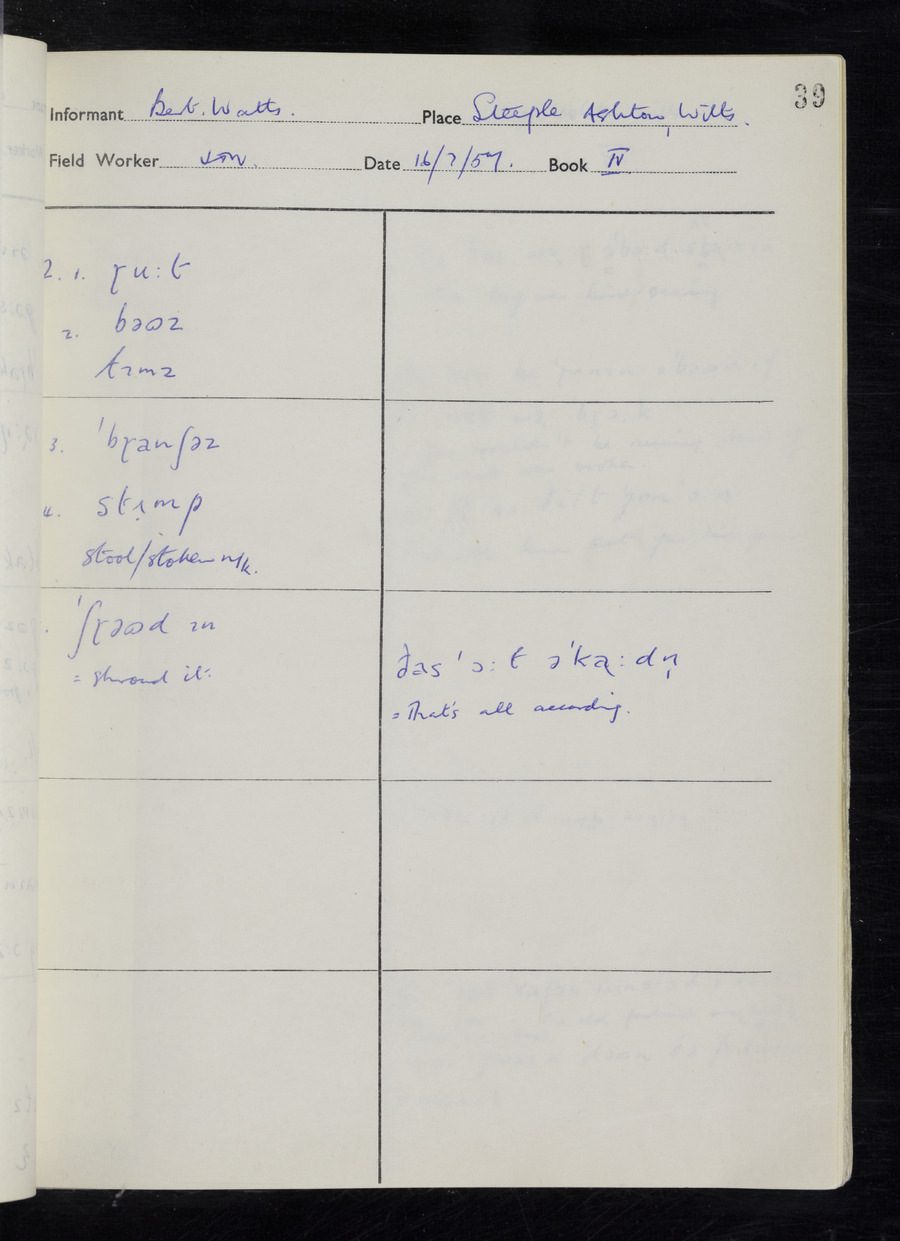 39
Informant Bert. Watts. Place Steeple Ashton, Wilts.
Field Worker Date 16/7/57. Book IV
2. 1. ɽu:t
2. bəʊz
tɪmz
3. ˈbɽanʃəz
4. stɪ̣mp
stool/stoken n/k.
ˈʃɽəʊd ɪn
= shroud it.
ðas ˈɔ:ɫ əˈkɑɽ:dn̩
= That's all according.